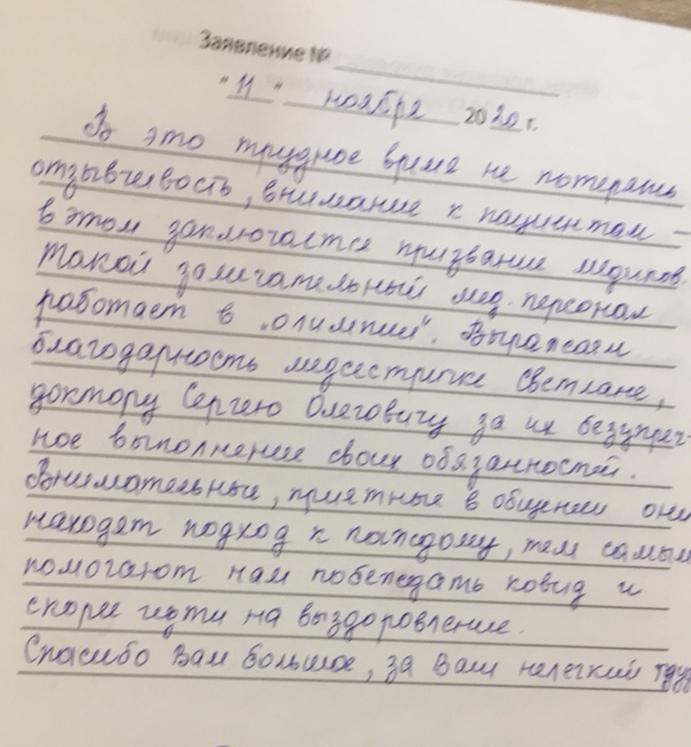 Заявление №
"11" ноября 2020 г.
В это трудное время не потерять
отзывчивость, внимание к пациентам –
в этом заключается призвание медиков.
Такой замечательный мед. персонал
работает в „Олимпии". Выражаем
благодарность медсестричке Светлане,
доктору Сергею Олеговичу за их безупреч-
ное выполнение своих обязанностей.
Внимательные, приятные в общении они
находят подход к каждому, тем самым
помогают нам побеждать ковид и
скорее идти на выздоровление.
Спасибо Вам большое, за Ваш нелегкий труд